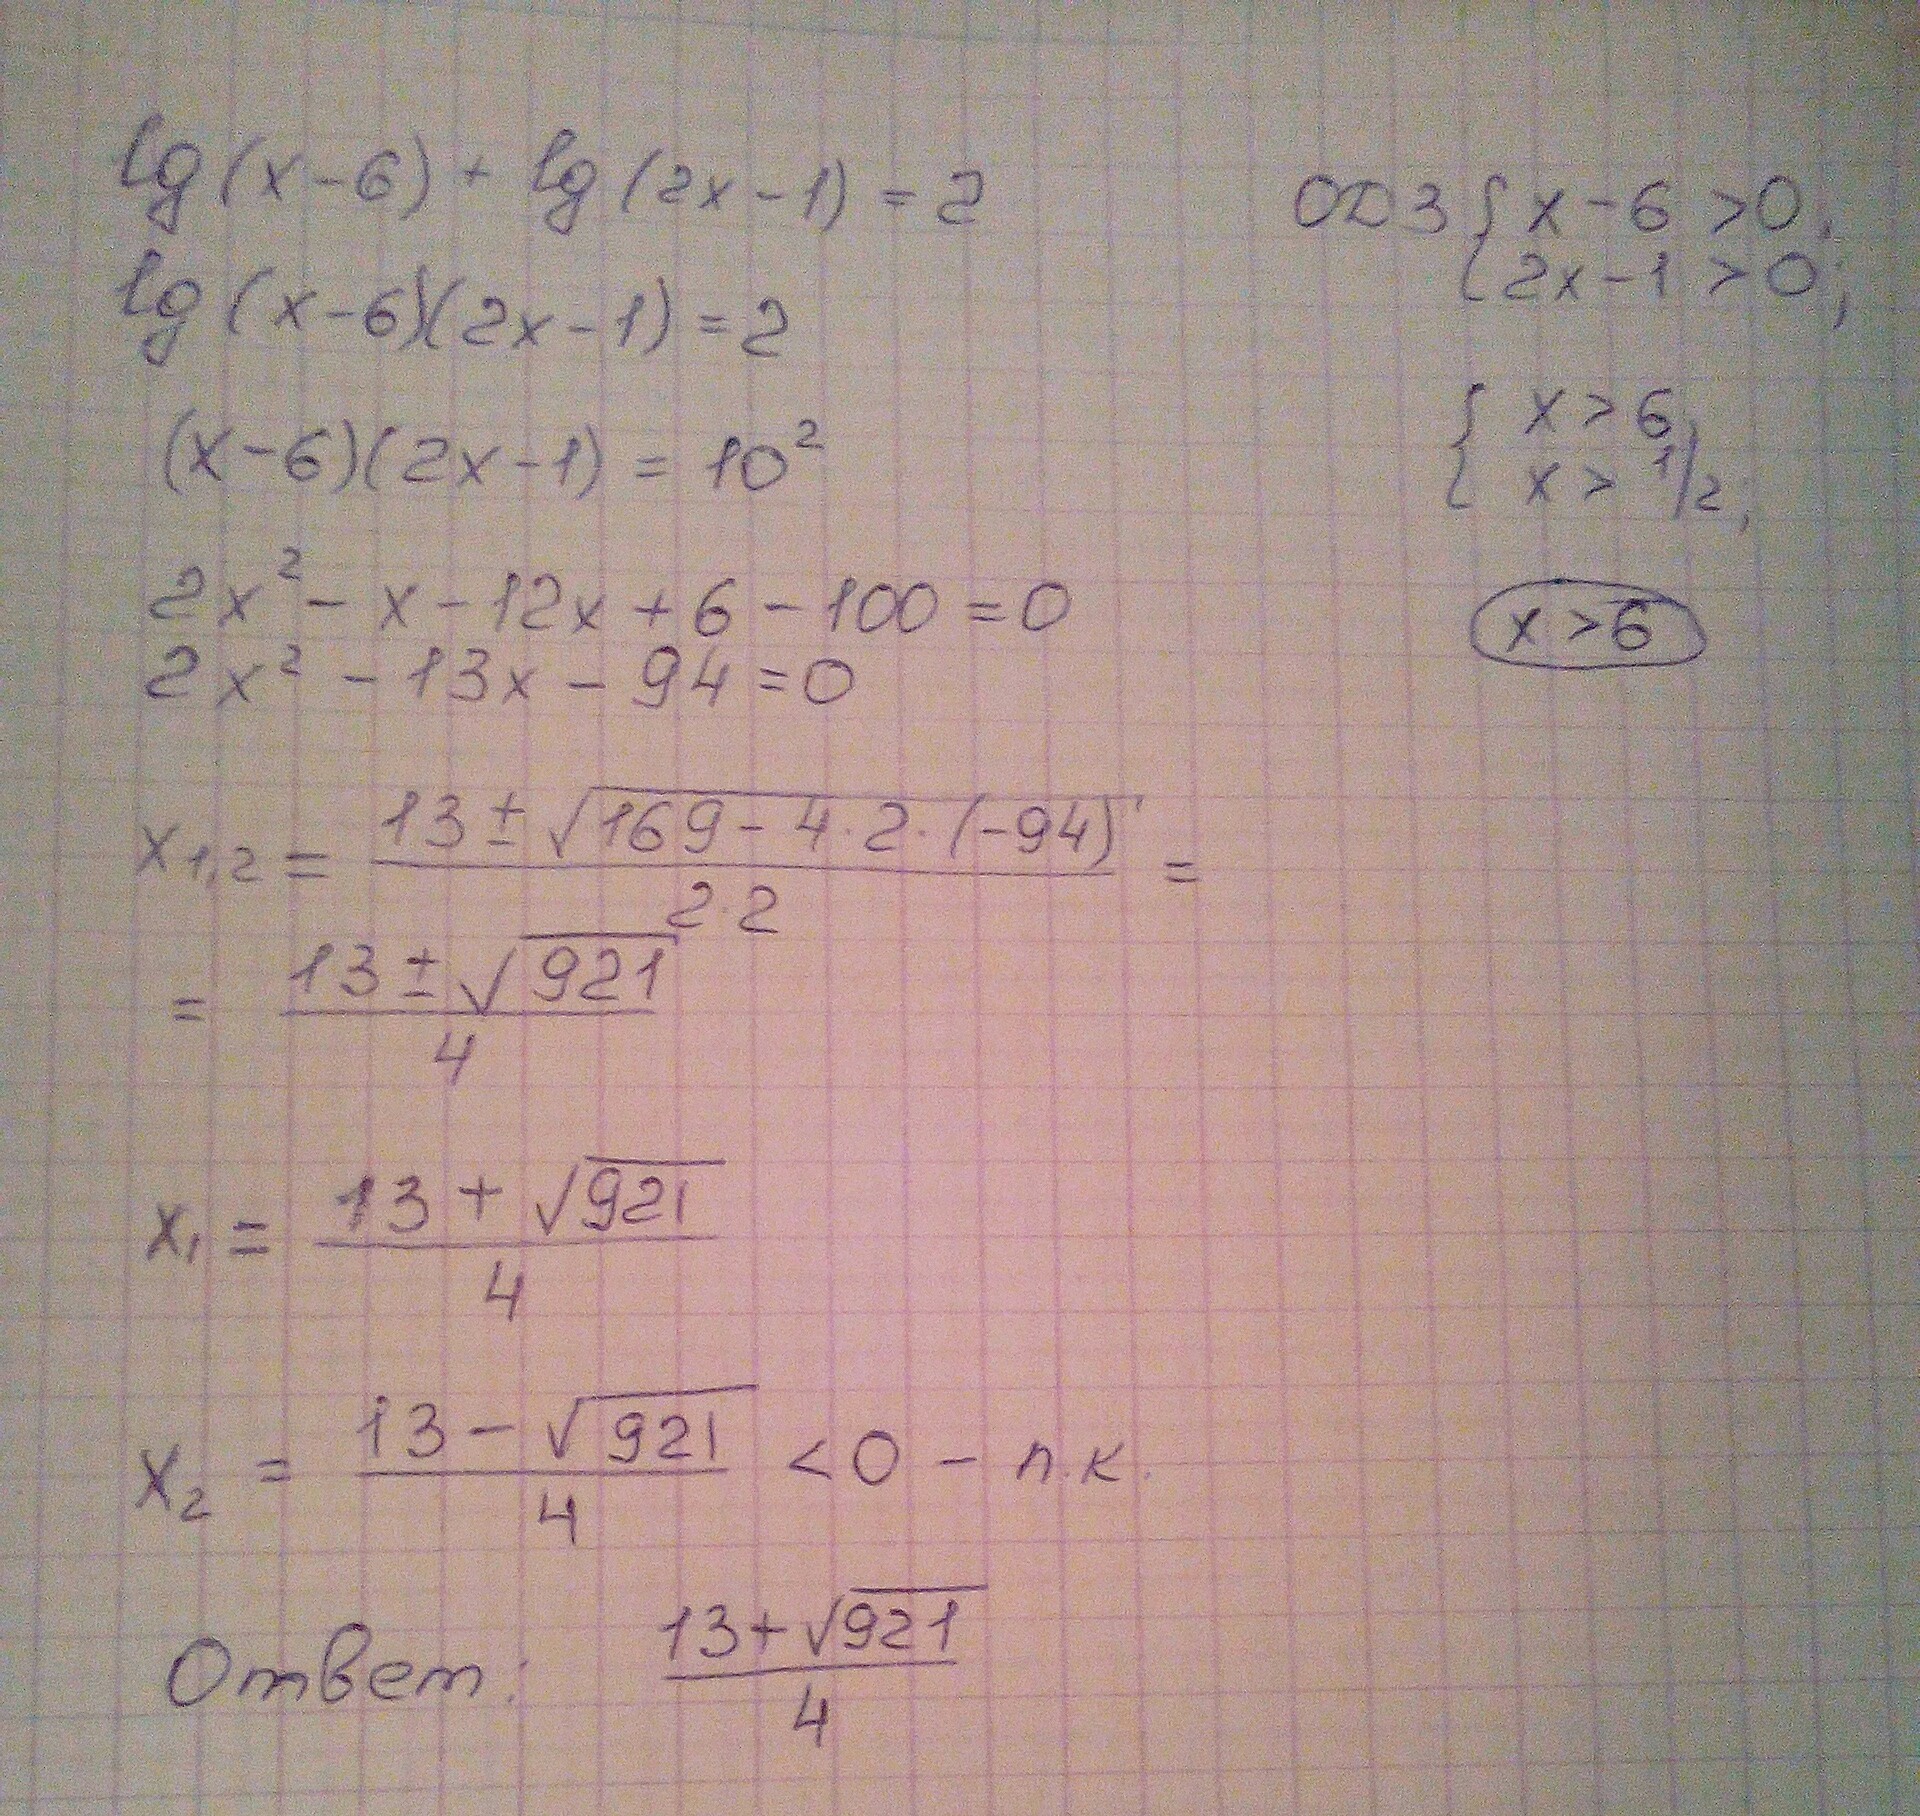 lg(x-6) + lg(2x-1) = 2
lg(x-6)(2x-1) = 2
(x-6)(2x-1) = 10²
2x² - x - 12x + 6 - 100 = 0
2x² - 13x - 94 = 0
x1,2 = (13 ± √(169 - 4·2·(-94))) / (2·2) =
= (13 ± √921) / 4
x₁ = (13 + √921) / 4
x₂ = (13 - √921) / 4 < 0 - п.к.
Ответ: (13 + √921) / 4
ОДЗ { x - 6 > 0,
2x - 1 > 0;
{ x > 6,
x > 1/2;
x > 6